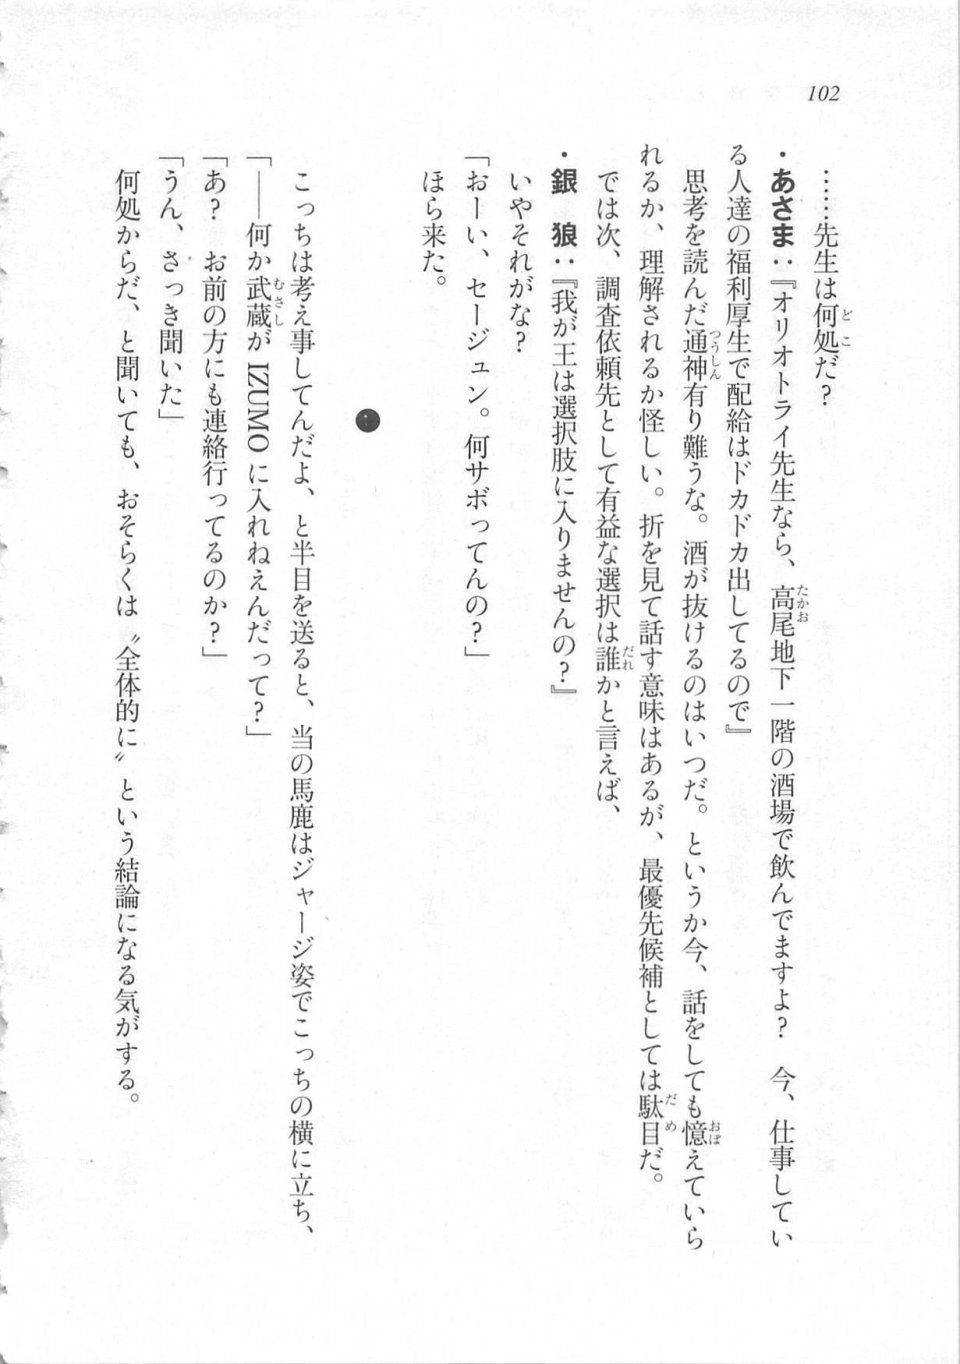 102
……先生は何処だ？
・あさま：『オリオトライ先生なら、高尾地下一階の酒場で飲んでますよ？　今、仕事してい
る人達の福利厚生で配給はドカドカ出してるので』
思考を読んだ通神有り難うな。酒が抜けるのはいつだ。というか今、話をしても憶えていら
れるか、理解されるか怪しい。折を見て話す意味はあるが、最優先候補としては駄目だ。
では次、調査依頼先として有益な選択は誰かと言えば、
・銀　狼：『我が王は選択肢に入りませんの？』
いやそれがな？
「おーい、セージュン。何サボってんの？」
ほら来た。
こっちは考え事してんだよ、と半目を送ると、当の馬鹿はジャージ姿でこっちの横に立ち、
「――何か武蔵が IZUMO に入れねえんだって？」
「あ？　お前の方にも連絡行ってるのか？」
「うん、さっき聞いた」
何処からだ、と聞いても、おそらくは〝全体的に〟という結論になる気がする。